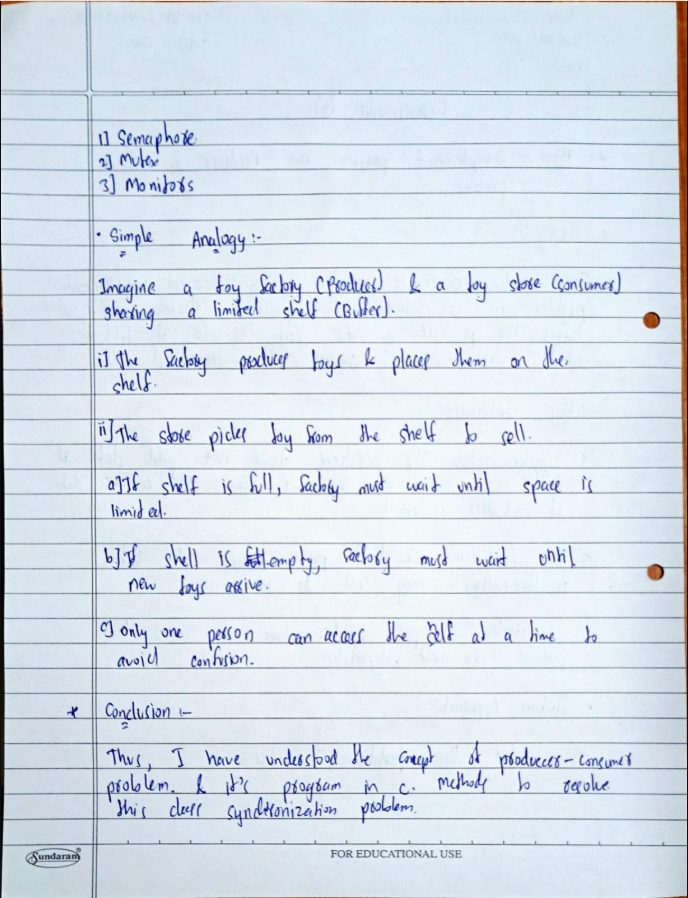 1] Semaphore
2] Mutex
3] Monitors
• Simple Analogy :-
Imagine a toy factory (Producer) & a toy store (consumer)
sharing a limited shelf (Buffer).
i] The factory produces toys & places them on the
shelf.
ii] The store picks toy from the shelf to sell.
a] If shelf is full, factory must wait until space is
limited.
b] If shell is empty, factory must wait until
new toys arrive.
c] Only one person can access the self at a time to
avoid confusion.
* Conclusion :-
Thus, I have understood the concept of producer-consumer
problem. & it's program in c. methods to resolve
this synchronization problem.
Sundaram
FOR EDUCATIONAL USE